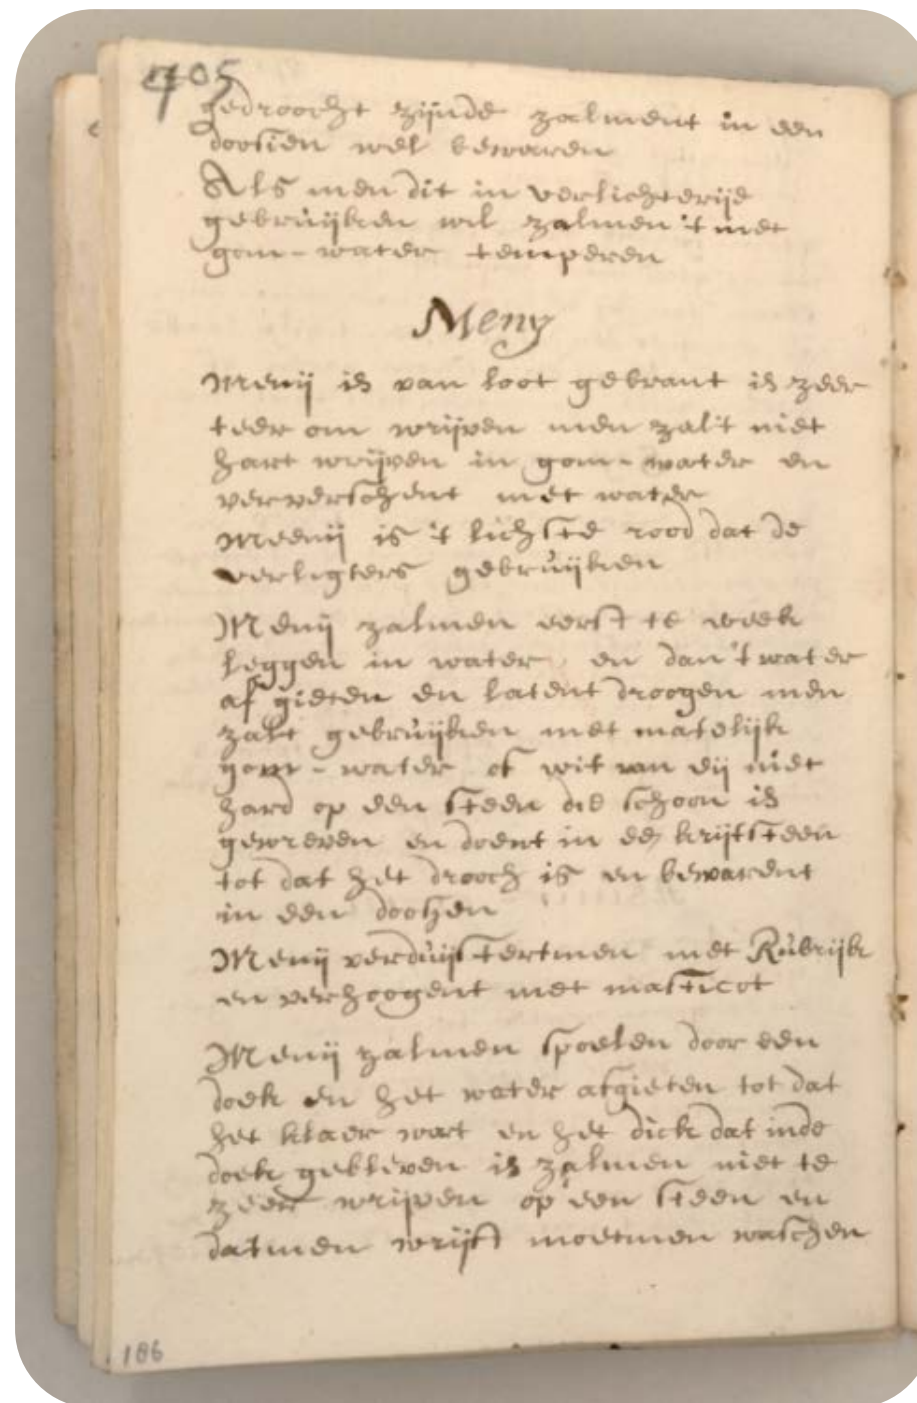 705
gedroocht zijnde zalment in een
doosien wel bewaren
Als men dit in verlichterije
gebruijken wil zalmen 't met
gom-water temperen
Meny
Menij is van loot gebrant is zeer
teer om wrijven men zalt niet
hart wrijven in gom-water en
ververschent met water
Meenij is 't lichste rood dat de
verligters gebruijken
Menij zalmen eerst te week
leggen in water, en dan 't water
af gieten en latent droogen men
zalt gebruijken met matelijk
gom-water of wit van eij niet
hard op een steen die schoon is
gewreven en doent in ee krijtsteen
tot dat het drooch is en bewarent
in een
Menij verduijstertmen met Rubrijk
en verhoogent met masticot
Menij zalmen spoelen door een
doek en het water afgieten tot dat
het klaer wart en het dick dat inde
doek gebleven is zalmen niet te
zeer wrijven op een steen en
datmen wrijft moetmen waschen
186